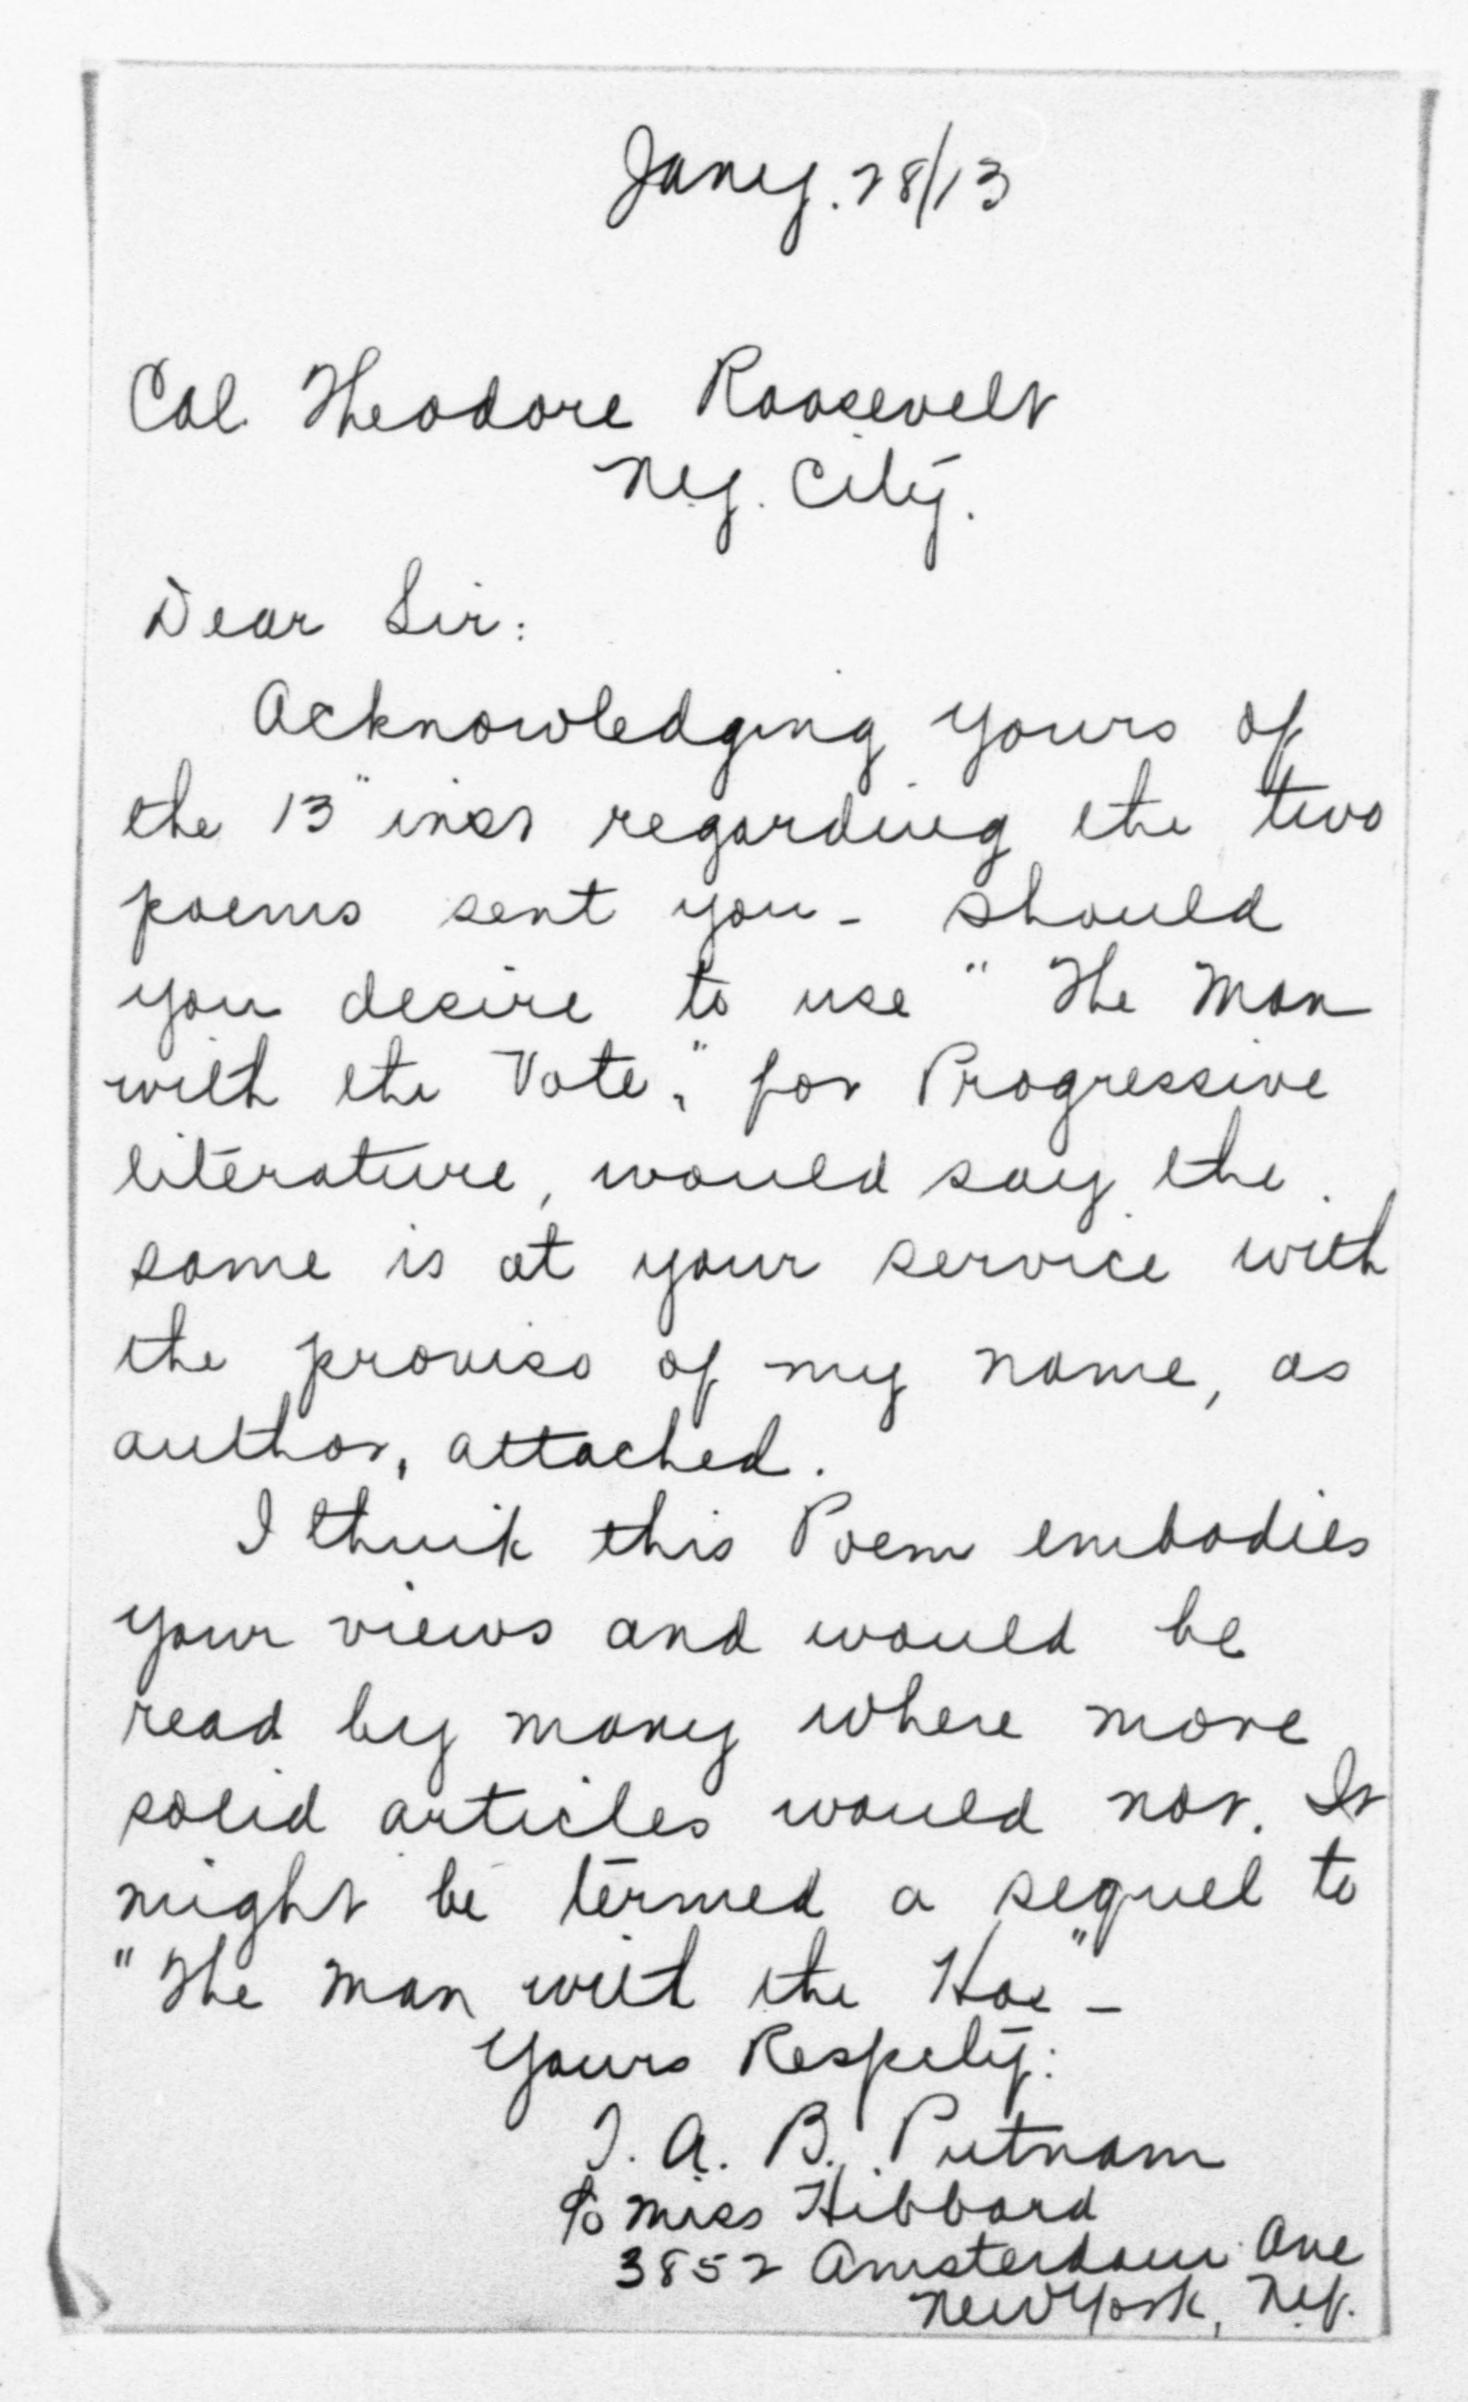 Jany. 28/13
Col. Theodore Roosevelt
N.Y. City.
Dear Sir:
Acknowledging yours of
the 13" inst regarding the two
poems sent you - should
you desire to use "The Man
with the Vote," for Progressive
literature, would say the
same is at your service with
the proviso of my name, as
author, attached.
I think this Poem embodies
your views and would be
read by many where more
solid articles would not. It
might be termed a sequel to
"The Man with the Hoe" -
Yours Respcty:
T. A. B. Putnam
c/o Miss Hibbard
3852 Amsterdam Ave
New York, N.Y.